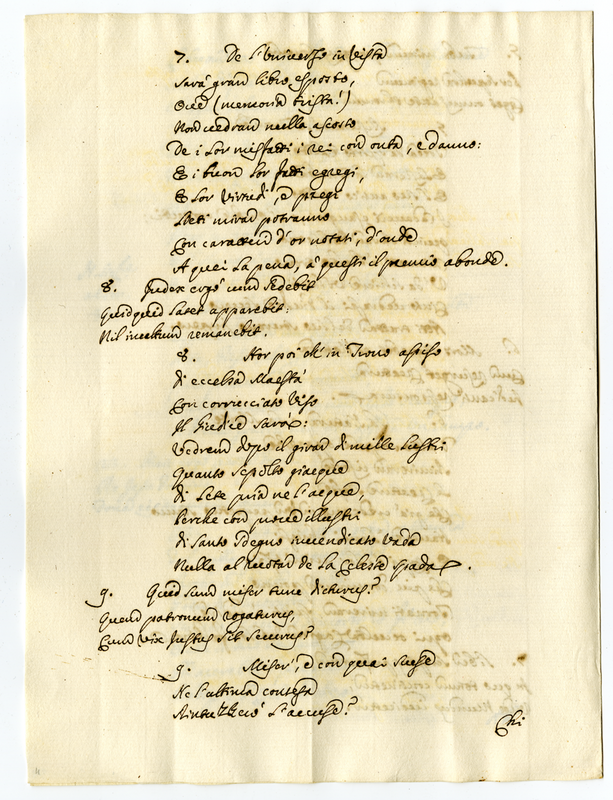 7. De l'Universo in vista
sarà gran libro esposto,
Ove (memoria trista!)
Non vedran nulla ascosto
De i lor misfatti i rei con onta, e danno:
E i buon lor fatti egregi,
E lor virtudi, e pregi
Lieti mirar potranno
Con caratteri d'or notati, d'onde
A quei la pena, à questi il premio abonde.
8. Judex ergo cum sedebit
Quidquid latet apparebit:
Nil inultum remanebit.
8. Hor poi ch' in Trono assiso
di eccelsa Maestà
Con corrucciato viso
Il Giudice sarà:
Vedremo dopo il girar di mille lustri
Quanto sepolto giacque
di Lete pria ne l'acque,
Perche con prove illustri
di Santo sdegno invendicato vada
Nulla al rotar de la Celeste spada.
9. Quid sum miser tunc dicturus?
Quem patronum rogaturus,
Cum vix Justus sit securus?
9. Miser', e con quai scuse
Ne l'ultima contesa
l'accuse?
Chi